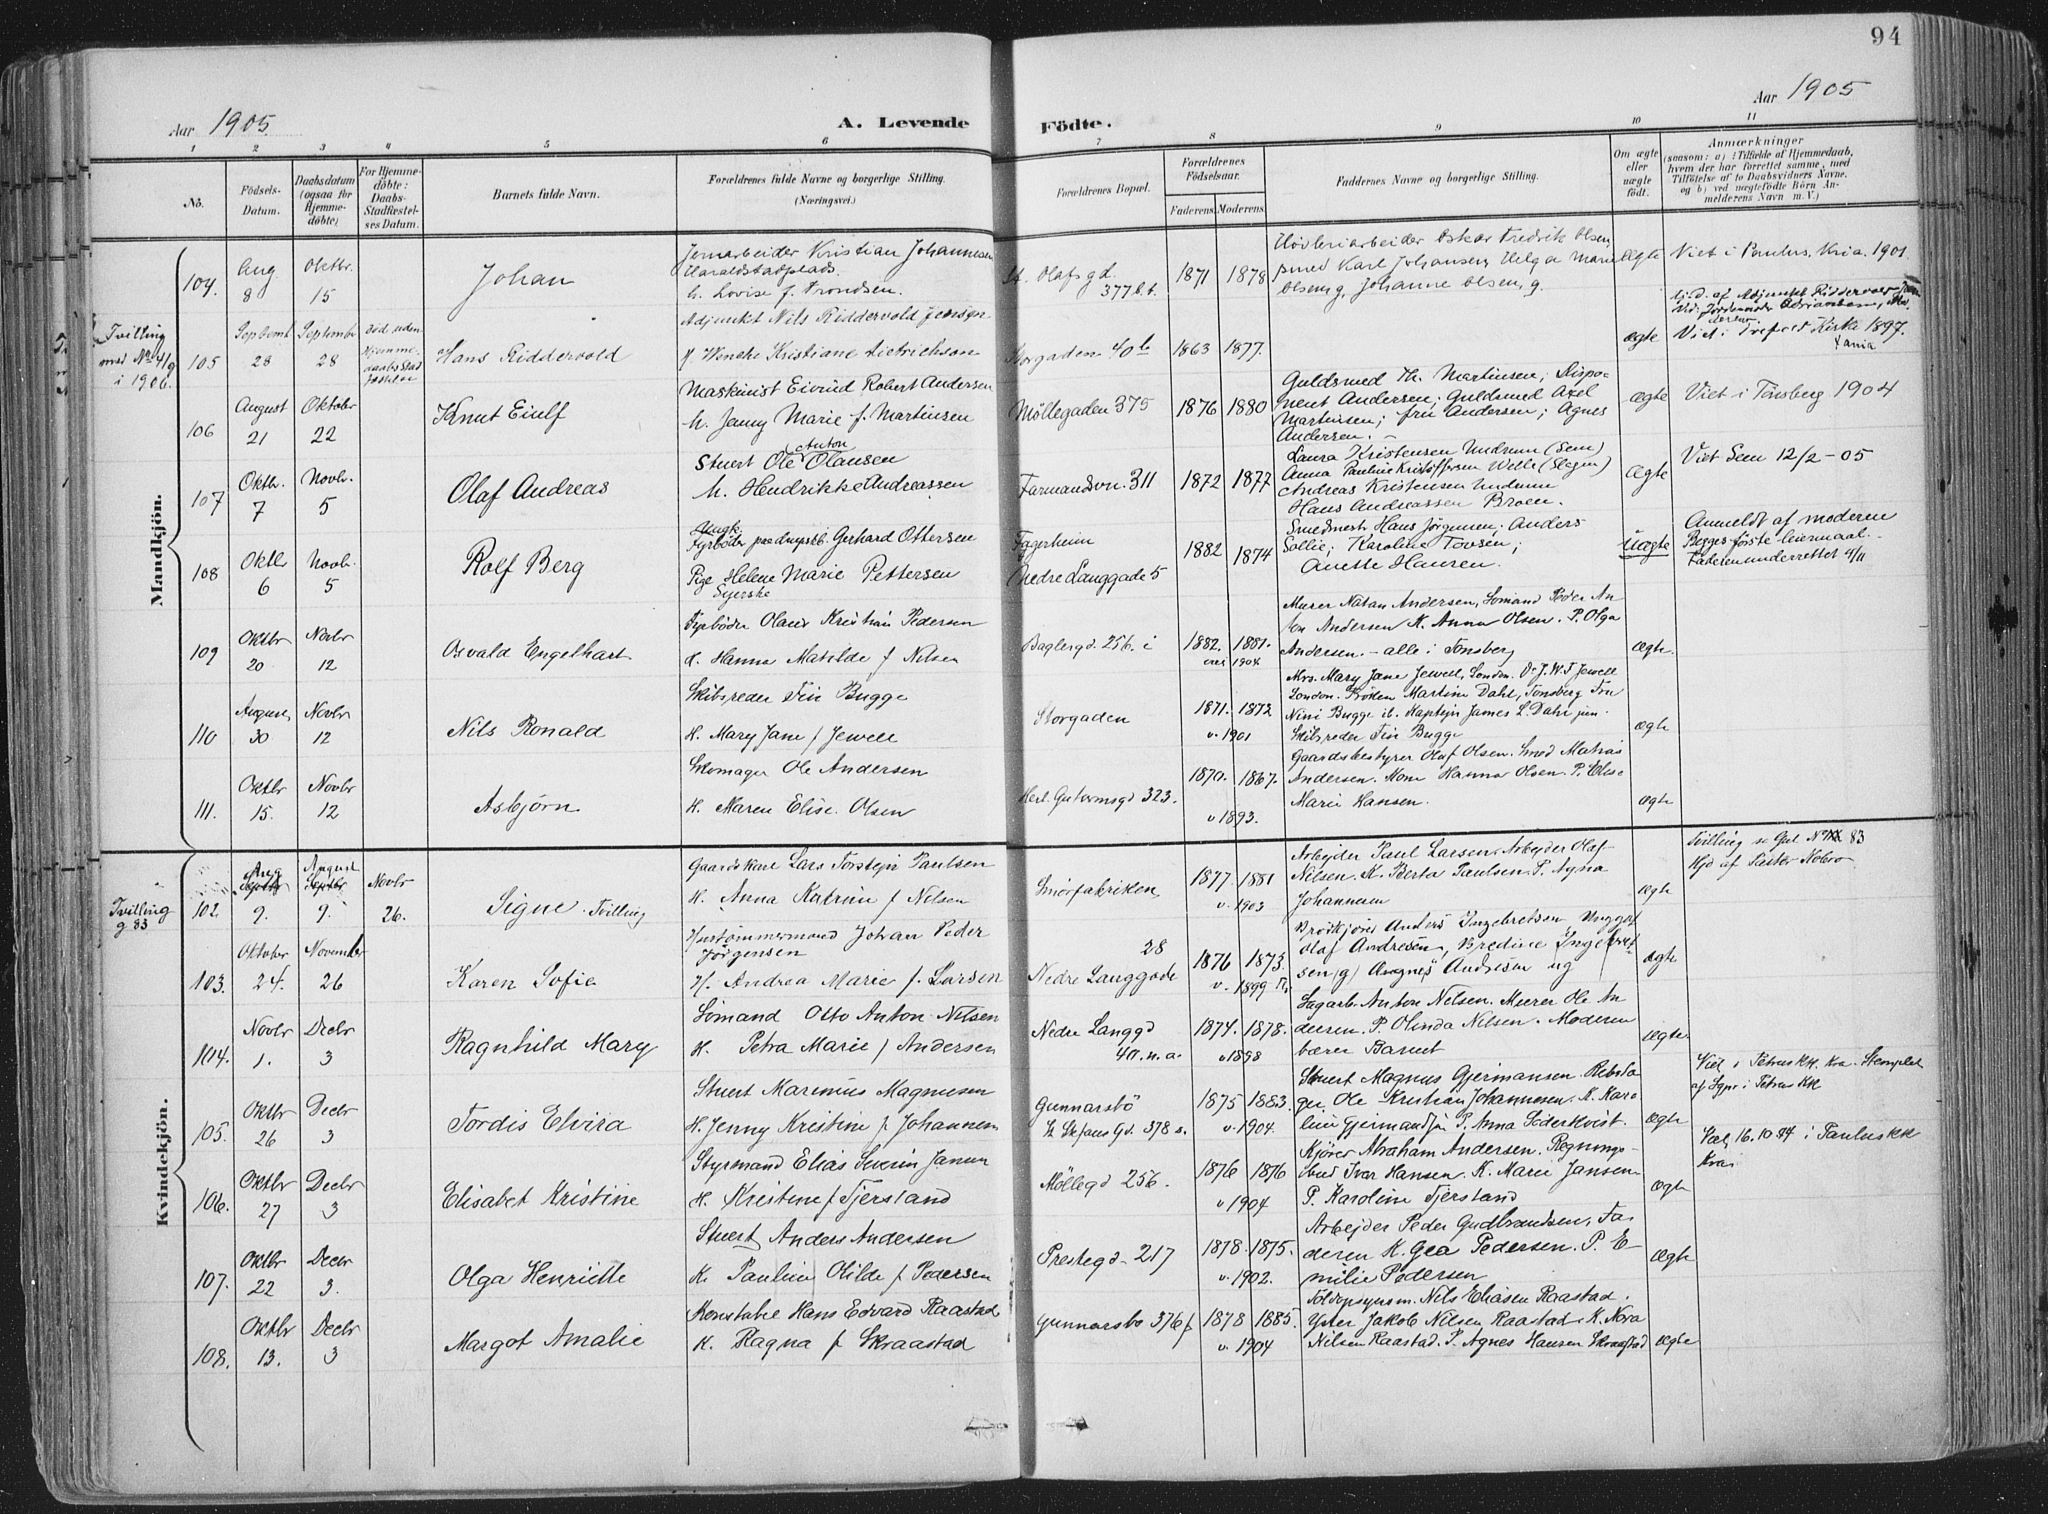 94
Aar 1905
A. Levende
Födte.
Aar 1905
1 2 3 4 5 6 7 8 9 10 11
No.
Födsels-Datum.
Daabsdatum (ogsaa for Hjemmedöbte)
For Hjemmedöbte: Daabs-Stadfæstelses Datum.
Barnets fulde Navn.
Forældrenes fulde Navne og borgerlige Stilling.
(Næringsvei.)
Forældrenes Bopæl.
Forældrenes Födselsaar.
Faderens. Moderens.
Faddernes Navne og borgerlige Stilling.
Om ægte eller uægte födt.
Anmærkninger
(saasom: a) i Tilfælde af Hjemmedaab, hvem der har forrettet samme, med Tilföielse af to Daabsvidners Navne, og b) ved uægtefödte Börn Anmelderens Navn m. V.)
Mandkjön.
104. Aug. 8 Oktbr. 15
Johan
Jernarbeider Kristian Johannesen
Haraldstadplads.
h. Lovise f. Trondsen.
St. Olafs gd. 377 b.t.
1871 1878
Høvleriarbeider Oskar Fredrik Olsen,
Karl Johansen, Helga Marie
Olsen, g. Johanne Olsen, g.
Ægte
Viet i Paulus, Kria. 1901
Tvilling med No 4/9 i 1906.
105 Septemb. 28 September 28
død uden Hjemmedaabs Stadfæstelse
Hans Riddervold
Adjunkt Nils Riddervold Jensen
H. Wenche Kristiane Dietrichson
Storgaden 40b
1863 1877.
ægte
Hjd. af Adjunkt Riddervold Jensen
Viet i Trefold. Kirke 1897.
Xania
106 August 21 Oktober 22
Knut Eiulf
Maskinist Eivind Robert Andersen
h. Jenny Marie f. Martinsen
Möllegaden 375
1876 1880
Guldsmed Th. Martinsen; Dispo-
nent Andersen; Guldsmed Axel
Martinsen; fru Andersen; Agnes
Andersen.
ægte
Viet i Tönsberg 1904
107 Oktbr. 7 Novbr. 5
Olaf Andreas
Stuert Ole Anton Olausen
h. Hendrikke Andreassen
Farmandsvn. 311
1872 1877
Laura Kristensen Undrum (Sem)
Anna Pauline Kristoffersen Welle (Slagen)
Andreas Kristensen Undrum
Hans Andreassen Broen.
Ægte
Viet Sem 12/2-05
108 Oktbr 6 Novbr. 5
Rolf Berg
Ungk.
Fyrbøder paa dampskb. Gerhard Ottersen
Pige Helene Marie Pettersen
Syerske
Fagerheim
Nedre Langgade 5
1882 1874
Smedmestr Hans Jørgensen; Anders
Sollie; Karoline Tovsen;
Anette Hansen.
Uægte
Anmeldt af moderen
Begges første leiermaal.
Faderen underrettet 4/11
109 Oktbr 20 Novbr 12
Osvald Engelhart
Fyrbøder Olaus Kristian Pedersen
H. Hanna Matilde f Nilsen
Baglergd. 256. i
1882. 1881.
viet 1904
Murer Natan Andersen, Sömand Peder An-
ton Andersen K. Anna Olsen. P. Olga
Andersen. - alle i Tönsberg
ægte.
110 August 30 Novbr 12
Nils Ronald
Skibsreder Finn Bugge
H. Mary Jane f Jewell
Storgaden
1871. 1872
v. 1901
Mrs. Mary Jane Jewell, London. Dr J. W. F Jewell
London. Frøken Martine Dahl, Tönsberg Fru
Nini Bugge ib. Kaptejn James L. Dahl jun.
Skibsreder Finn Bugge
ægte
111. Oktbr 15. Novbr 12
Asbjörn
Skomager Ole Andersen
H. Maren Elise Olsen
Hert. Gutormsgd 323.
1870. 1867.
v 1893.
Gaardsbestyrer Olaf Olsen. Smed Matias
Andersen. Kone Hanna Olsen. P. Elise
Marie Hansen.
ægte
Kvindekjön.
Tvilling g 83
102. Aug 9. August 9. Novbr 26.
Signe. Tvilling
Gaardskarl Lars Torstejn Paulsen
H. Anna Katrine f Nilsen
Smörfabriken
1877. 1881
v. 1903
Arbejder Paul Larsen. Arbejder Olaf
Nilsen. K. Berta Paulsen. P. Agna
Johannesen
ægte
Tvilling se Gpl No 83
Hjd af Pastor Kobro
103. Oktober 24. November 26
Karen Sofie
Hustømmermand Johan Peder
Jörgensen
H. Andrea Marie f. Larsen
28
Nedre Langgade
1876 1873.
v. 1899
Brødkjører Anders Ingebretsen Ungget
Olaf Andresen, Bredine Ingebret-
sen (g) Agnes Andresen ug
ægte
104. Novbr 1. Decbr 3
Ragnhild Mary
Sömand Otto Anton Nilsen
H. Petra Marie f Andersen
Nedre Langgd
40. n. a.
1874. 1878.
v 1898
Sagarb. Anton Nilsen. Murer Ole An-
dersen. P. Olinda Nilsen. Moderen
bærer Barnet
ægte
105. Oktbr 26 Decbr 3
Tordis Elvira
Stuert Marinius Magnusen
H. Jenny Kristine f Johannesen
Gunnarsbö
St Stefans Gd. 378 a.
1875 1883.
v. 1904.
Stuert Magnus Gjermansen. Rebsla-
ger Ole Kristian Johannesen. K. Karo-
line Gjermandsen P. Anna Söderkvist.
ægte
Viet i Petrus KK Kra. Stemplet
af Sogr i Petrus KK
106. Oktbr 27 Decbr 3
Elisabet Kristine
Styrmand Elias Severin Jansen
H. Kristine f Fjerstand
Möllegd 256.
1876 1876
v 1904
Kjører Abraham Andersen. Regnings-
bud Ivar Hansen. K. Marie Jansen
P. Karoline Fjerstand
ægte
Viet 16.10.04 i Paulus KK
Kra
107. Oktbr 22 Decbr 3.
Olga Henriette
Stuert Anders Andersen
K. Pauline Otilde f Pedersen
Prestegd. 217
1878. 1875.
v. 1902.
Arbejder Peder Gudbrandsen, Fa-
deren K. Gea Pedersen. P. E-
milie Pedersen
ægte
108. Oktbr 13. Decbr 3
Margot Amalie
Konstabel Hans Edvard Raastad
K. Ragna f Skraastad
Gunnarsbo 376 f
1878 1885.
v. 1904
Toldopsynsm. Nils Eliasen Raastad.
Jakob Nilsen Raastad. K. Nora
Nilsen Raastad. P. Agnes Hansen Skraastad
ægte